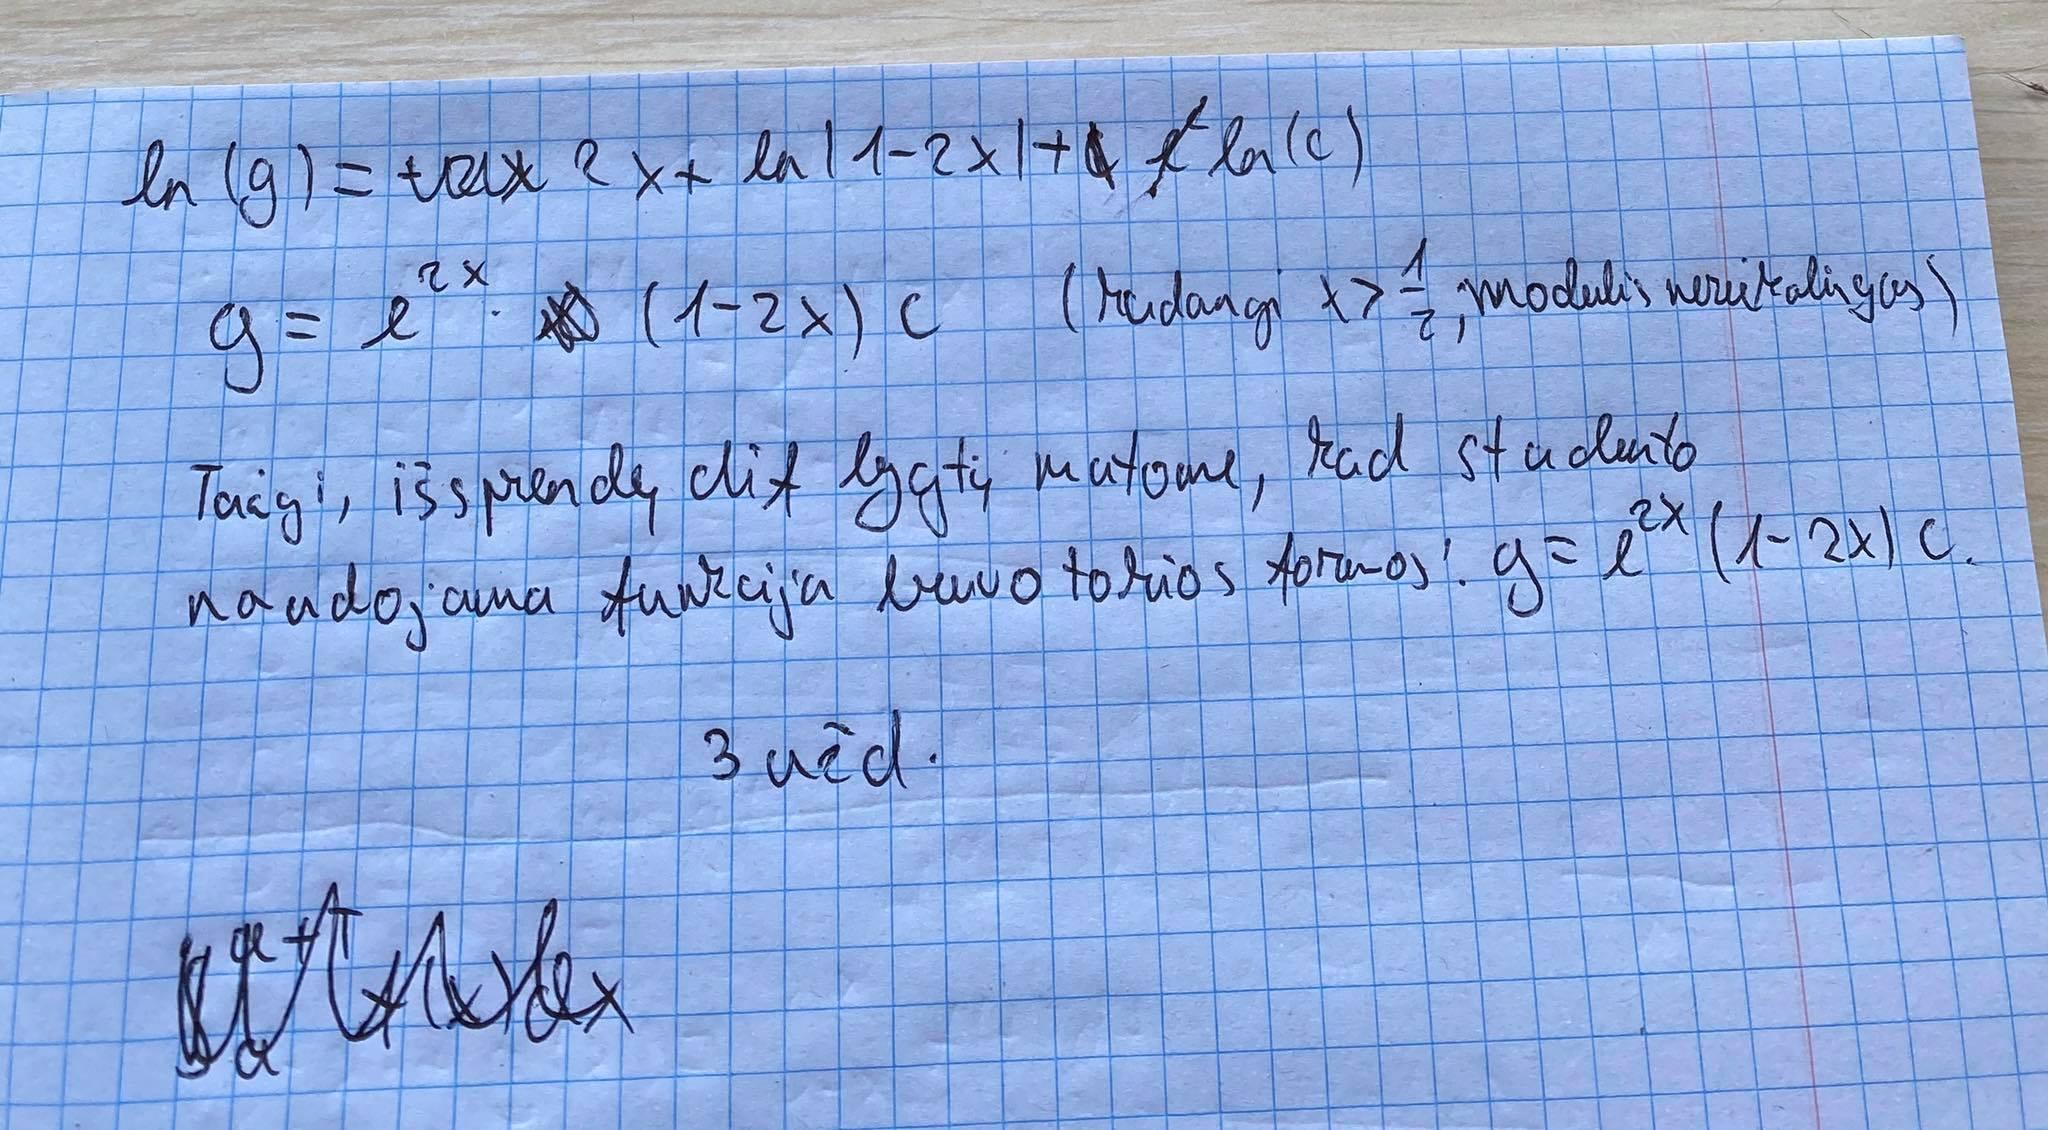 ln(g) = 2x + ln|1-2x| + ln(c)
g = e^{2x} · (1-2x) c (kadangi x > 1/2, modulis nereikalingas)
Taigi, išsprendę dif lygtį matome, kad studento
naudojama funkcija buvo tokios formos: g = e^{2x} (1-2x) c.
3 užd.